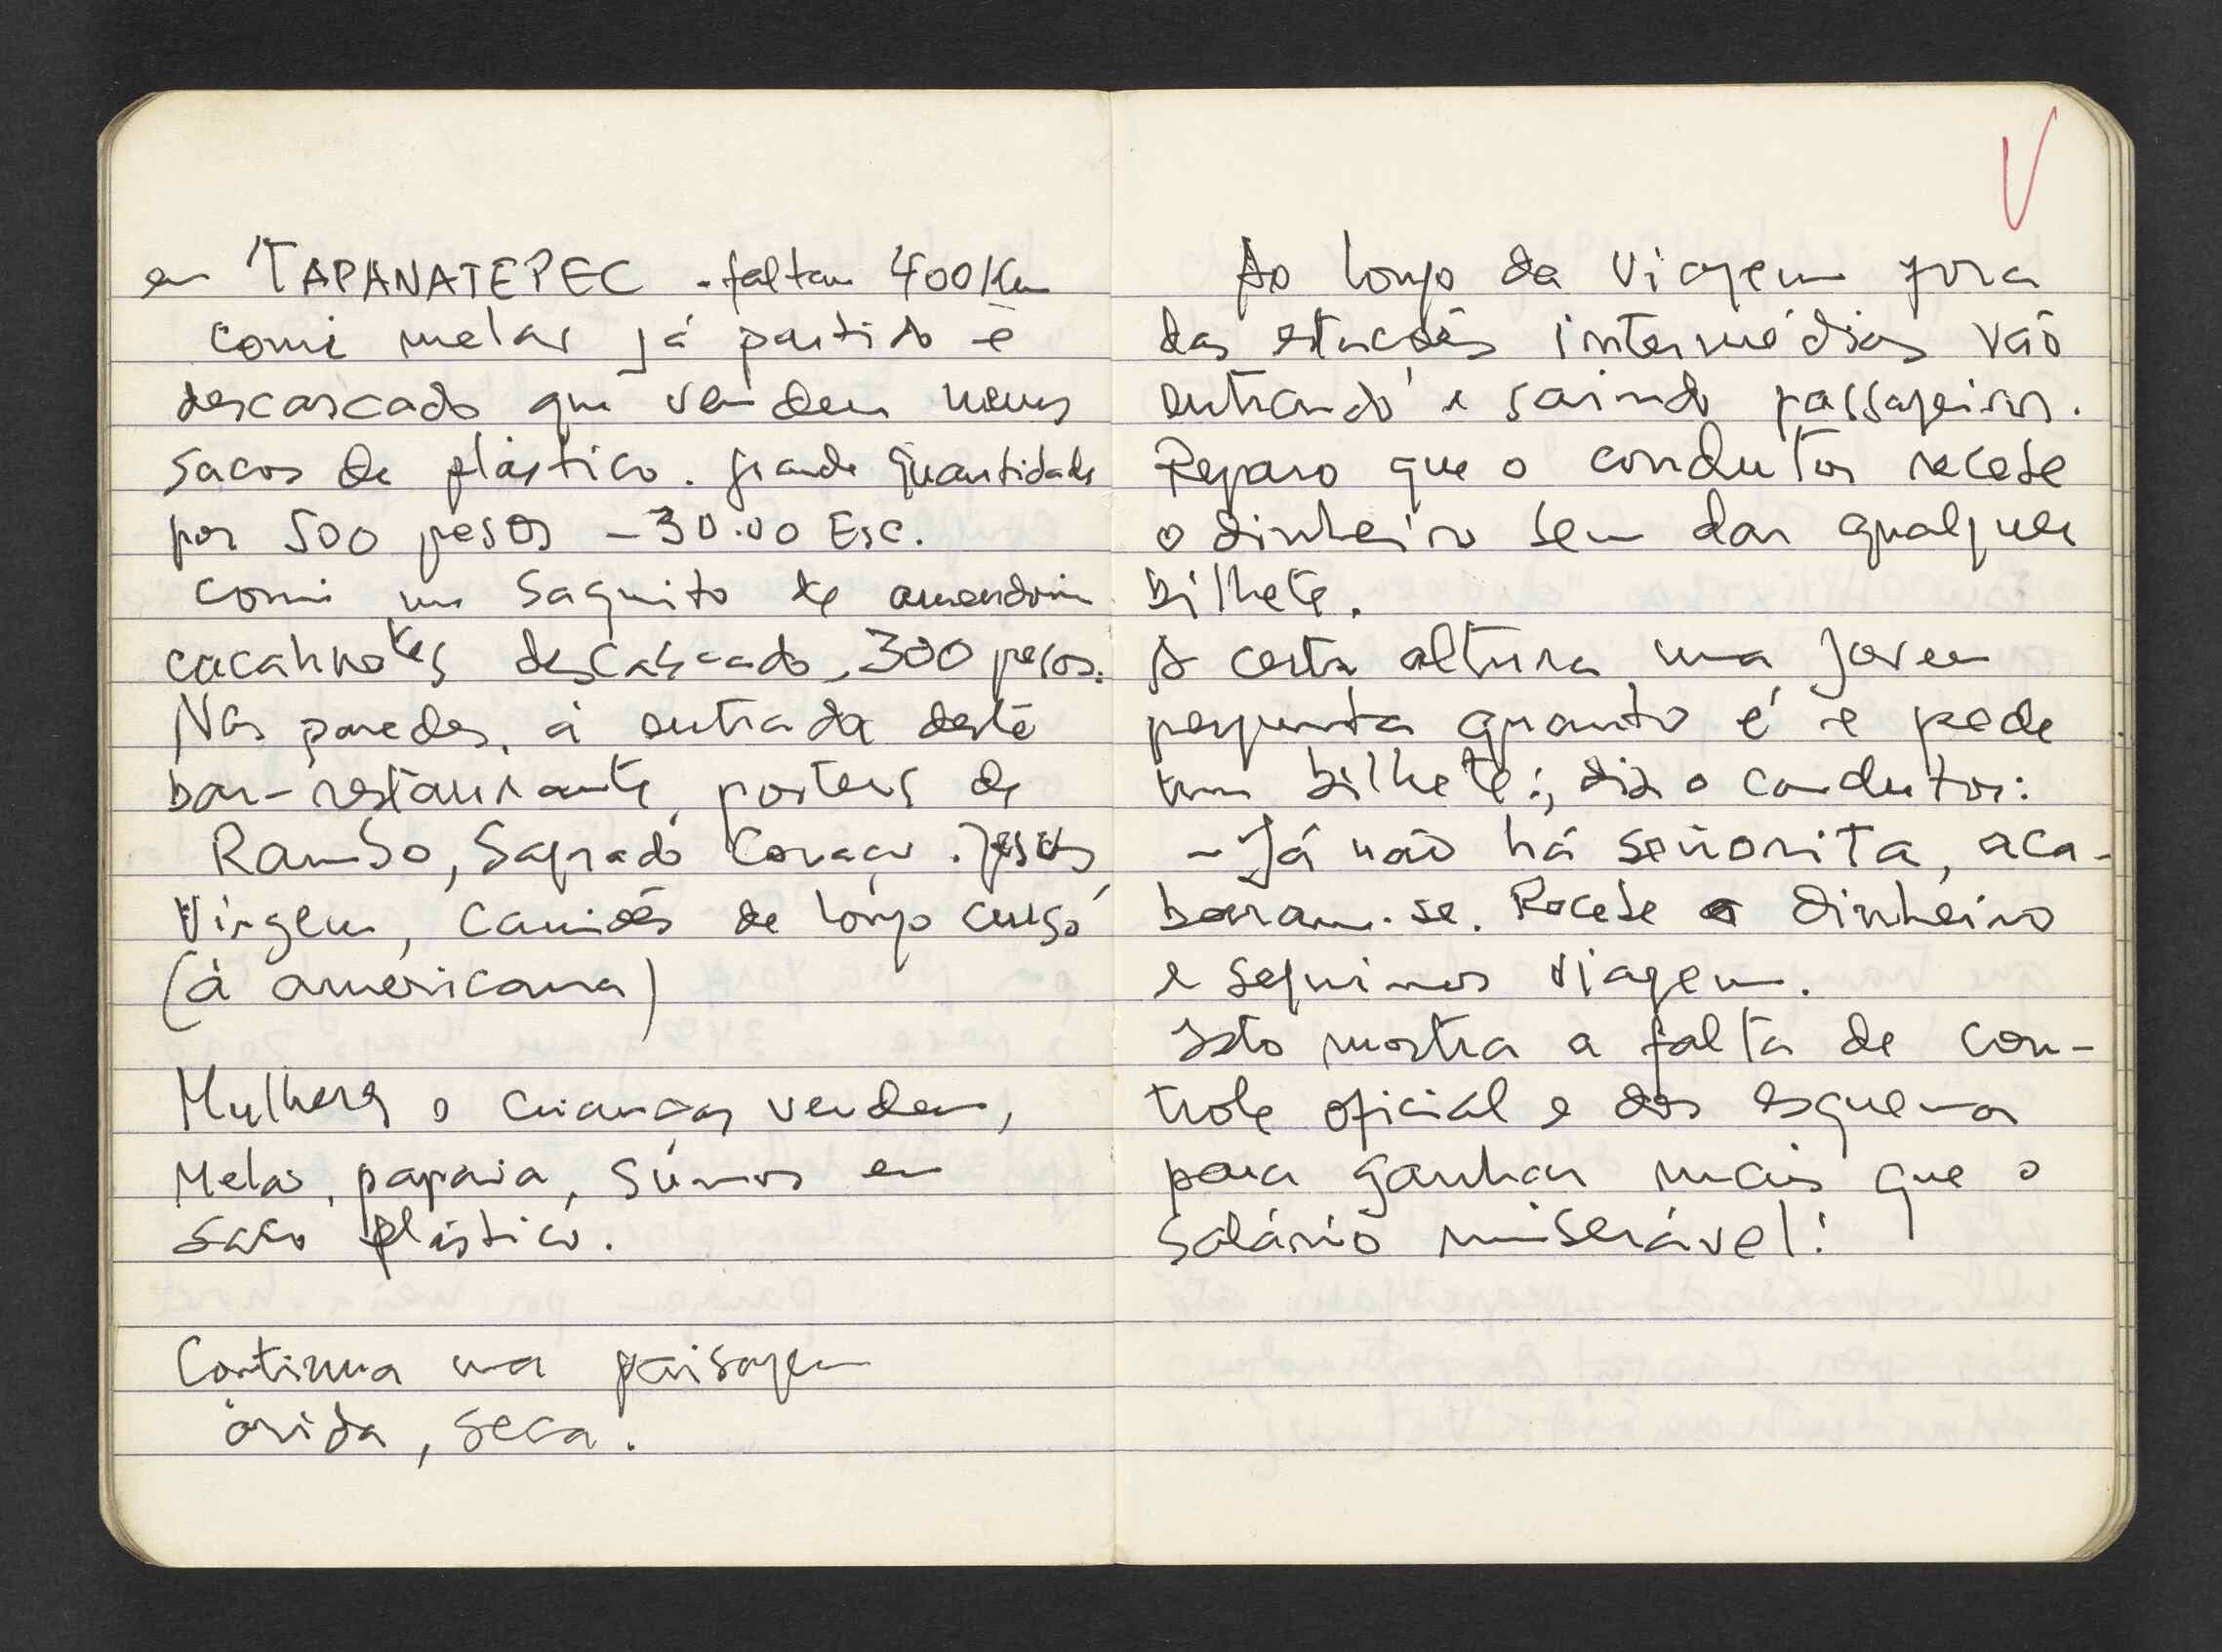 em TAPANATEPEC - faltam 400 Km
comi melão já partido e
descascado que vendem nuns
sacos de plástico. grande quantidade
por 500 pesos - 30.00 Esc.
comi um saquito de amendoim
cacahuotes descascado, 300 pesos.
Nas paredes, à entrada deste
bar-restaurante, posters de
Rambo, Sagrado Coração. Jesus,
Virgem, camiões de longo curso
(à americana)
Mulheres e crianças vendem,
Melão, papaia, sumos em
saco plástico.
Continua uma paisagem
árida, seca.
Ao longo da viagem fora
das estações intermédias vão
entrando e saindo passageiros.
Reparo que o condutor recebe
o dinheiro sem dar qualquer
bilhete.
A certa altura uma jovem
pergunta quanto é e pede
um bilhete; diz o condutor:
- Já não há señorita, aca-
baram-se. Recebe o dinheiro
e seguimos viagem.
Isto mostra a falta de con-
trole oficial e dos esquemas
para ganhar mais que o
salário miserável!